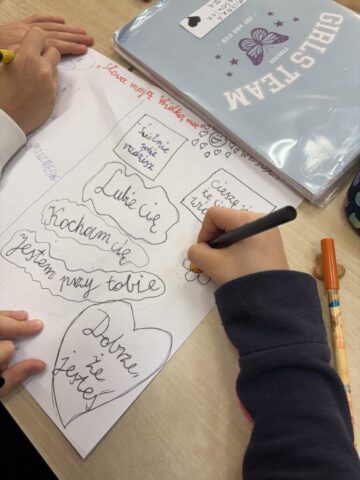 GIRLS TEAM
"Słowa mają Wielką moc"
Świetnie
sobie
radzisz
cieszę się
że Cię
Lubię Cię
Kocham cię
Jestem przy tobie
Dobrze,
że
jesteś